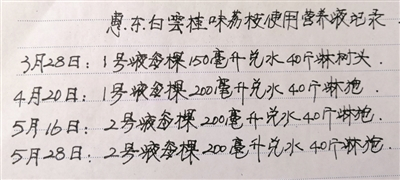 惠东白云桂味荔枝使用营养液记录
3月28日：1号液每棵150毫升兑水40斤淋树头.
4月20日：1号液每棵200毫升兑水40斤淋施.
5月16日：2号液每棵200毫升兑水40斤淋施.
5月28日：2号液每棵200毫升兑水40斤淋施.